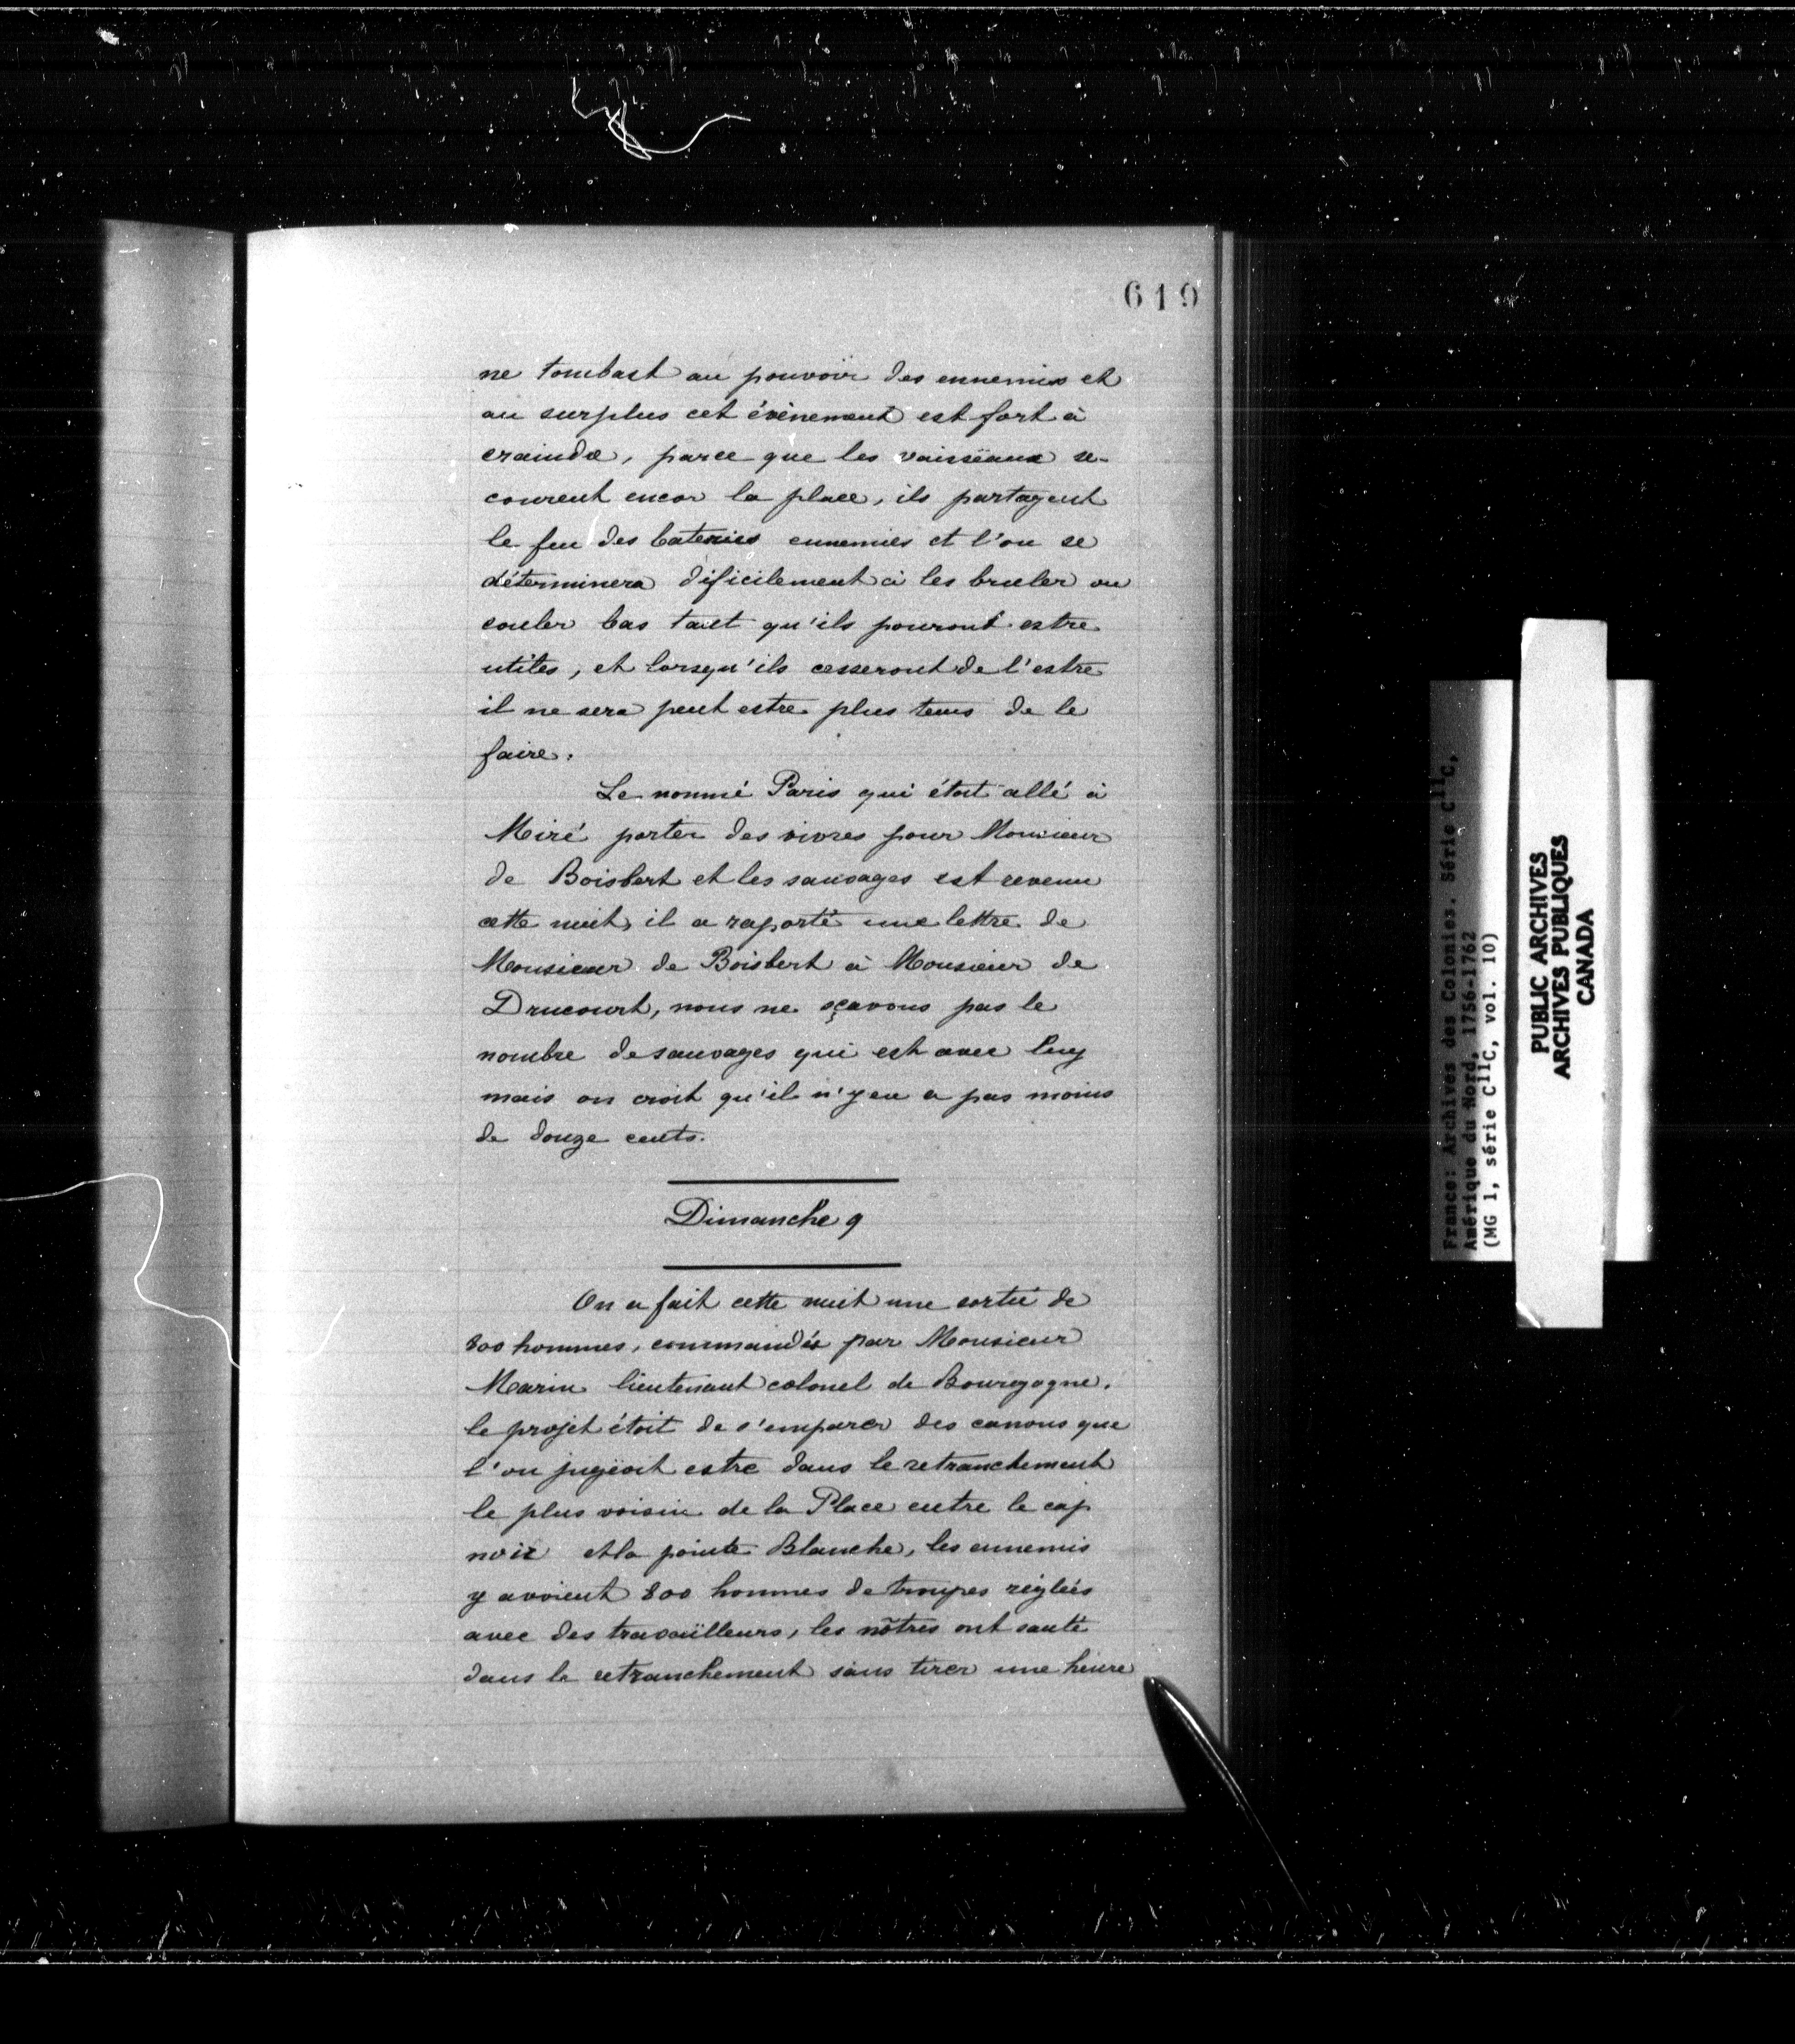 619
ne tombast au pouvoir des ennemis et
au surplus cet évènement est fort à
craindre, parce que les vaisseaux se-
courent encor la place, ils partagent
le feu des bateries ennemies et l'on se
déterminera dificilement à les bruler ou
couler bas tant qu'ils pouront estre
utiles, et lorsqu'ils cesseront de l'estre
il ne sera peut estre plus tems de le
faire.
Le nommé Paris qui étoit allé à
Miré porter des vivres pour Monsieur
de Boisbert et les sauvages est revenu
cette nuit, il a raporté une lettre de
Monsieur de Boisbert à Monsieur de
Drucourt, nous ne sçavons pas le
nombre de sauvages qui est avec luy
mais on croit qu'il n'y en a pas moins
de douze cents.
Dimanche 9
On a fait cette nuit une sortie de
800 hommes, commandés par Monsieur
Marin lieutenant colonel de Bourgogne.
le projet étoit de s'emparer des canons que
l'on jugeoit estre dans le retranchement
le plus voisin de la Place entre le cap
noir et la pointe Blanche, les ennemis
y avoient 800 hommes de troupes réglées
avec des travailleurs, les nôtres ont sauté
dans le retranchement sans tirer une heure
France: Archives des Colonies. Série C11C,
Amérique du Nord, 1756-1762
(MG 1, série C11C, vol. 10)
PUBLIC ARCHIVES
ARCHIVES PUBLIQUES
CANADA